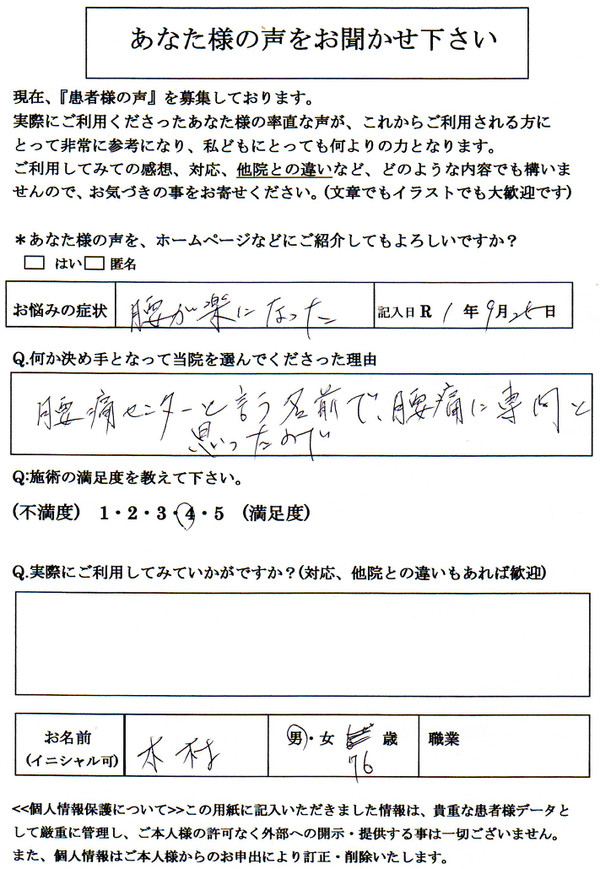 あなた様の声をお聞かせ下さい
現在、『患者様の声』を募集しております。
実際にご利用くださったあなた様の率直な声が、これからご利用される方に
とって非常に参考になり、私どもにとっても何よりの力となります。
ご利用してみての感想、対応、他院との違いなど、どのような内容でも構いま
せんので、お気づきの事をお寄せください。(文章でもイラストでも大歓迎です)
＊あなた様の声を、ホームページなどにご紹介してもよろしいですか？
□ はい □ 匿名
お悩みの症状 腰が楽になった 記入日 R 1 年 9月 25日
Q.何か決め手となって当院を選んでくださった理由
腰痛センターと言う名前で、腰痛に専門と
思ったので
Q:施術の満足度を教えて下さい。
(不満度) 1・2・3・4・5 (満足度)
Q.実際にご利用してみていかがですか？(対応、他院との違いもあれば歓迎)
お名前 木村 男・女 歳 職業
(イニシャル可) 76
<<個人情報保護について>>この用紙に記入いただきました情報は、貴重な患者様データと
して厳重に管理し、ご本人様の許可なく外部への開示・提供する事は一切ございません。
また、個人情報はご本人様からのお申出により訂正・削除いたします。